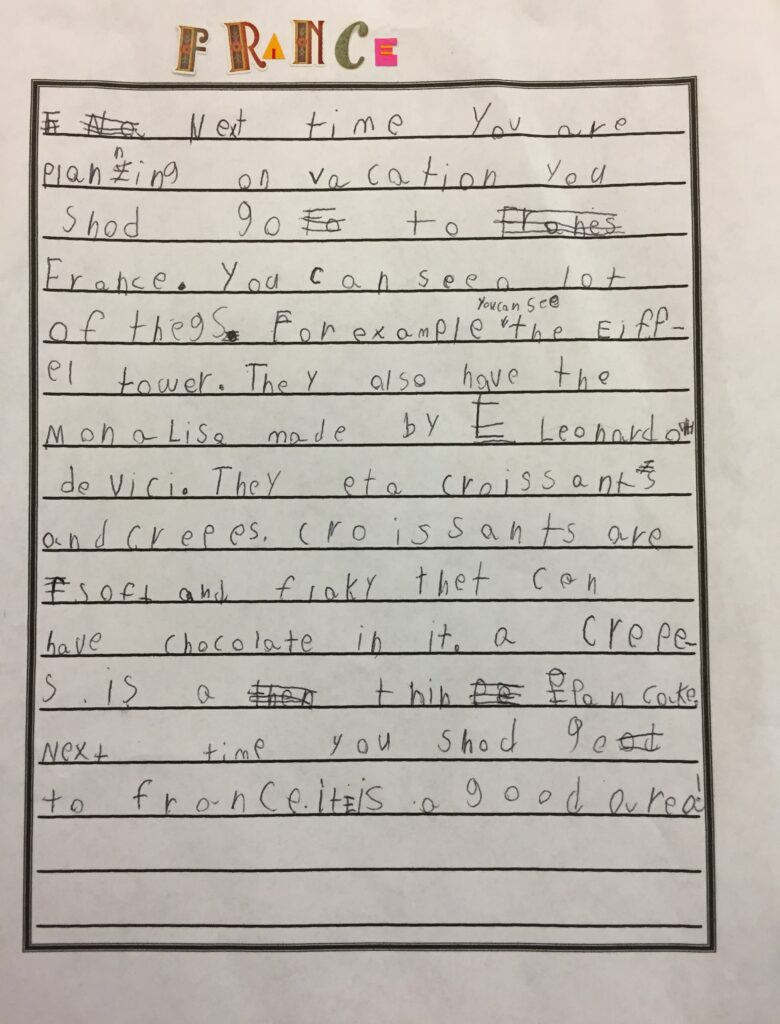 FRANCE
Next time You are
planning on vacation you
shod go to
France. You can see a lot
of thegs. For example you can see the Eiff-
el tower. They also have the
Mona Lisa made by Leonardo
de vici. They eta croissants
and crepes. croissants are
soft and flaky thet can
have chocolate in it. a crepe-
s. is a thin pan cake.
Next time you shod go
to france. it is a good area!